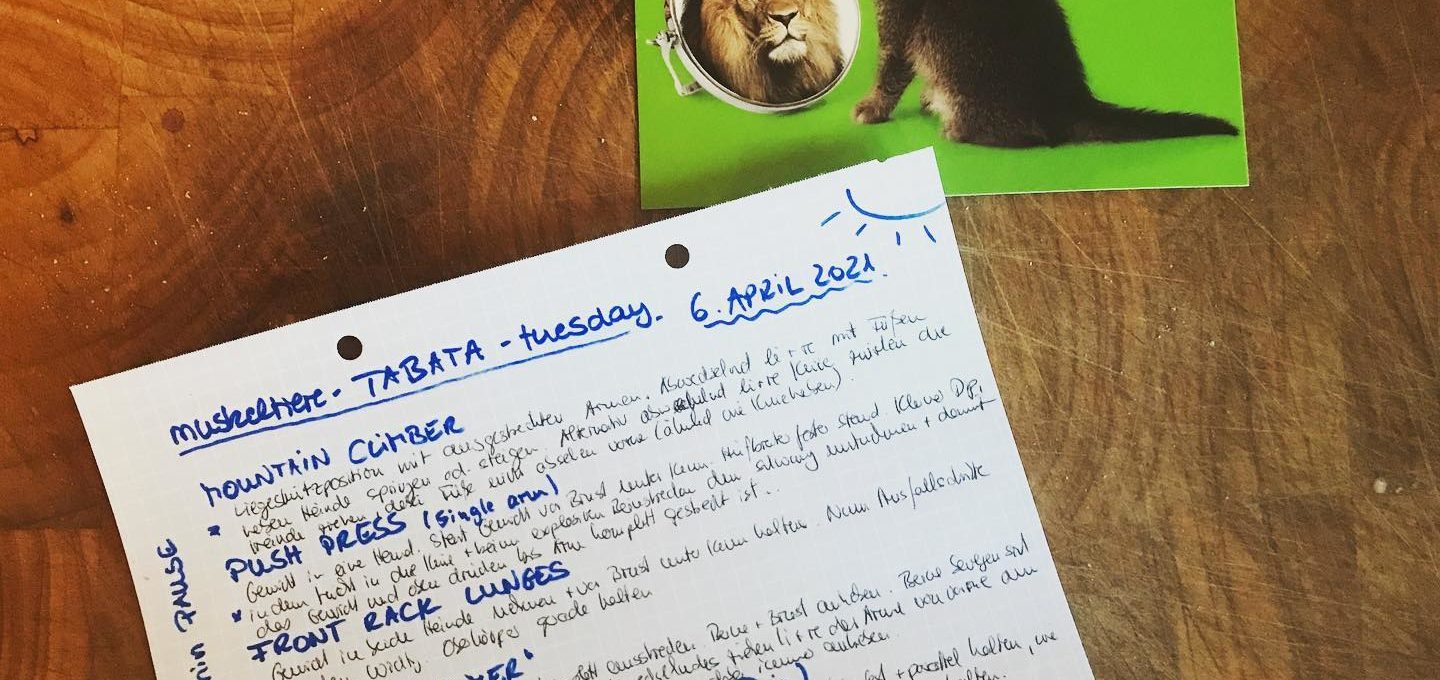 muskeltiere - TABATA - tuesday. 6. APRIL 2021.
MOUNTAIN CLIMBER
* Liegestützposition mit ausgestreckten Armen. Abwechselnd li + re mit Füßen
neben Hände springen od. steigen. Alternativ abwechselnd li + re Knie zwischen die
Hände ziehen, dabei Füße nicht absetzen vorne (ähnlich wie Knieheben).
PUSH PRESS (single arm)
Gewicht in eine Hand. Start Gewicht vor Brust unter Kinn. Hüftbreiter fester Stand. Kleiner Dip,
* in dem leicht in die Knie + beim explosiven Beinstrecken den Schwung mitnehmen + damit
das Gewicht nach oben drücken bis Arm komplett gestreckt ist..
FRONT RACK LUNGES
Gewicht in beide Hände nehmen + vor Brust unter Kinn halten. Nun Ausfallschritte
wichtig Oberkörper gerade halten
ausstrecken. Beine + Brust anheben. Beine bewegen sich
li + re der Arme von vorne am
immer anheben.
fest + parallel halten, wie
halten.
min PAUSE